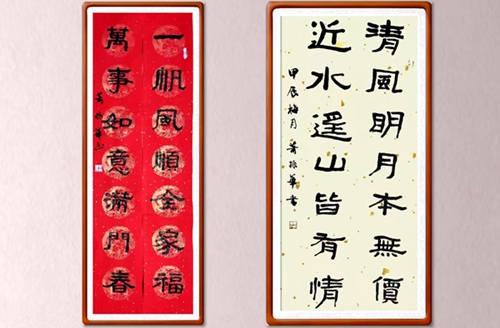 一帆風順全家福
萬事如意滿門春
清風明月本無價
近水遥山皆有情
甲辰梅月 萧振華書